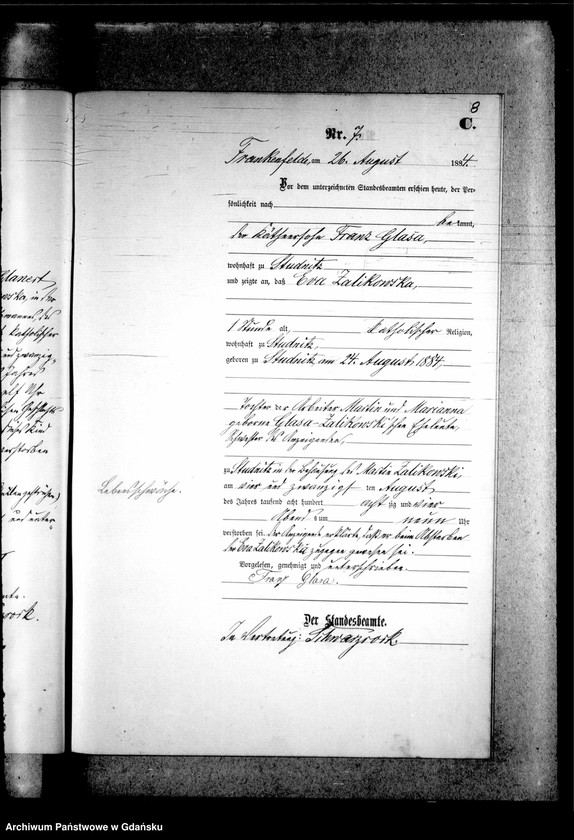 8
C.
Nr. 7.
Frankenfelde, am 26. August 1884.
Vor dem unterzeichneten Standesbeamten erschien heute, der Per-
sönlichkeit nach
bekannt,
der Käthnersohn Franz Glasa,
wohnhaft zu Studnitz
und zeigte an, daß Eva Zalikowska,
1 Stunde alt, katholischer Religion,
wohnhaft zu Studnitz,
geboren zu Studnitz am 24. August 1884,
Tochter der Arbeiter Martin und Marianna
geborne Glasa-Zalikowski'schen Eheleute,
Schwester des Anzeigenden,
zu Studnitz in der Behausung des Martin Zalikowski,
am vier und zwanzigsten August
des Jahres tausend acht hundert achtzig und vier
Abends um neun Uhr
verstorben sei. Der Anzeigende erklärte, daß er beim Absterben
der Eva Zalikowski zugegen gewesen sei.
Vorgelesen, genehmigt und unterschrieben.
Franz Glasa.
Der Standesbeamte.
In Vertretung: Schwarzrock.
Lebensschwäche.
Glanert
katholischer
und zwanzig
Jahres
elf Uhr
Kind
verstorben
und unter-
Archiwum Państwowe w Gdańsku